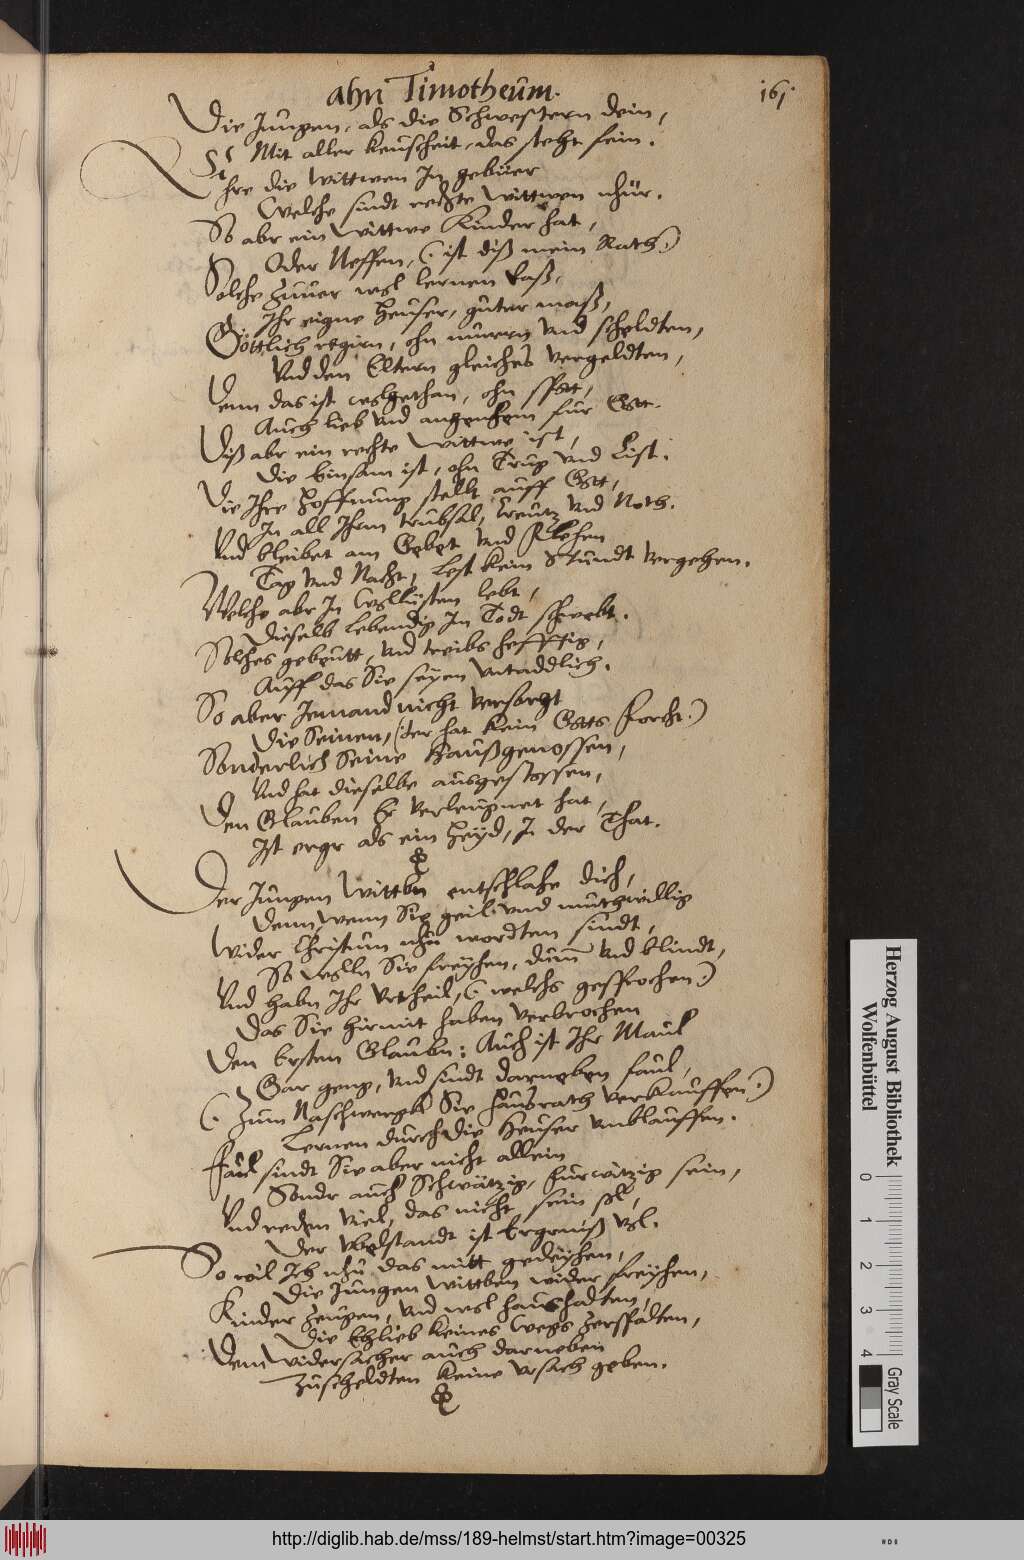 ahn Timotheüm.
161.
Die Jungen, als die Schwestern dein,
Mit aller keuscheit, das steht fein.
Ehre die Wittwen In gebüer
Welche sindt rechte Wittwen nhür.
So abr ein Wittwe Kinder hat,
Oder Neffen, (: ist diß mein Rath:)
Solche zuuer wol lernen laß,
Ihr eigne Heuser, guter maß,
Göttlich regirn, ohn murrn vnd scheldten,
Vnd den Eltern gleiches vergeldten,
Denn das ist wolgethan, ohn spott,
Auch lieb vnd angenhem für Gott.
Diß abr ein rechte Wittwe ist,
Die Einsam ist, ohn Trug vnd List.
Die Ihre Hoffnung stellt auff Gott,
In all Ihrm trübsal, Creutz vnd Noth.
Vnd bleibet am Gebet vnd Flehen
Tag vnd Nacht, Lest kein Stundt vergehen.
Welche abr In Wollüsten lebt,
Dieselb lebendig Im Todt schwebt.
Solches gebeutt, vnd treibs hefftig,
Auff das Sie seyen vntaddlich.
So aber Jemand nicht versorgt
Die Seinen, (der hat kein Gotts Forcht:)
Sonderlich Seine Haußgenossen,
Vnd hat dieselbe ausgestossen,
Den Glauben Er verleugnet hat,
Ist ergr als ein Heyd, In der That.
Der Jungen Wittbn entschlahe dich,
Denn, wenn Sie geil vnd muthwillig
Wider Christum nhu wordten sindt,
So wolln Sie freyhen, dum vnd blindt,
Vnd habn Ihr Vrtheil, (: welchs gesprochen:)
Das Sie hirmit haben verbrochen
Den Ersten Glaubn: Auch ist Ihr Maul
Gar geng, vnd sindt darneben faul,
(: Zum Naschwergk Sie hausrath verkauffen:)
Lernen durch die Heuser vmblauffen.
Faul sindt Sie aber nicht allein
Sondr auch Schwätzig, furwitzig sein,
Vnd reden viel, das nicht sein sol,
Der vbelstandt ist Ergernuß vol.
So wil Ich nhu das mitt gedeyhen,
Die Jungen Wittben wider freyhen,
Kinder zeugen, vnd wol haushalten,
Die Ehlieb keines Wegs zerspalten,
Dem Widersacher auch darneben
Zuscheldten keine vrsach geben.
Herzog August Bibliothek
Wolfenbüttel
0 1 2 3 4
Gray Scale
http://diglib.hab.de/mss/189-helmst/start.htm?image=00325